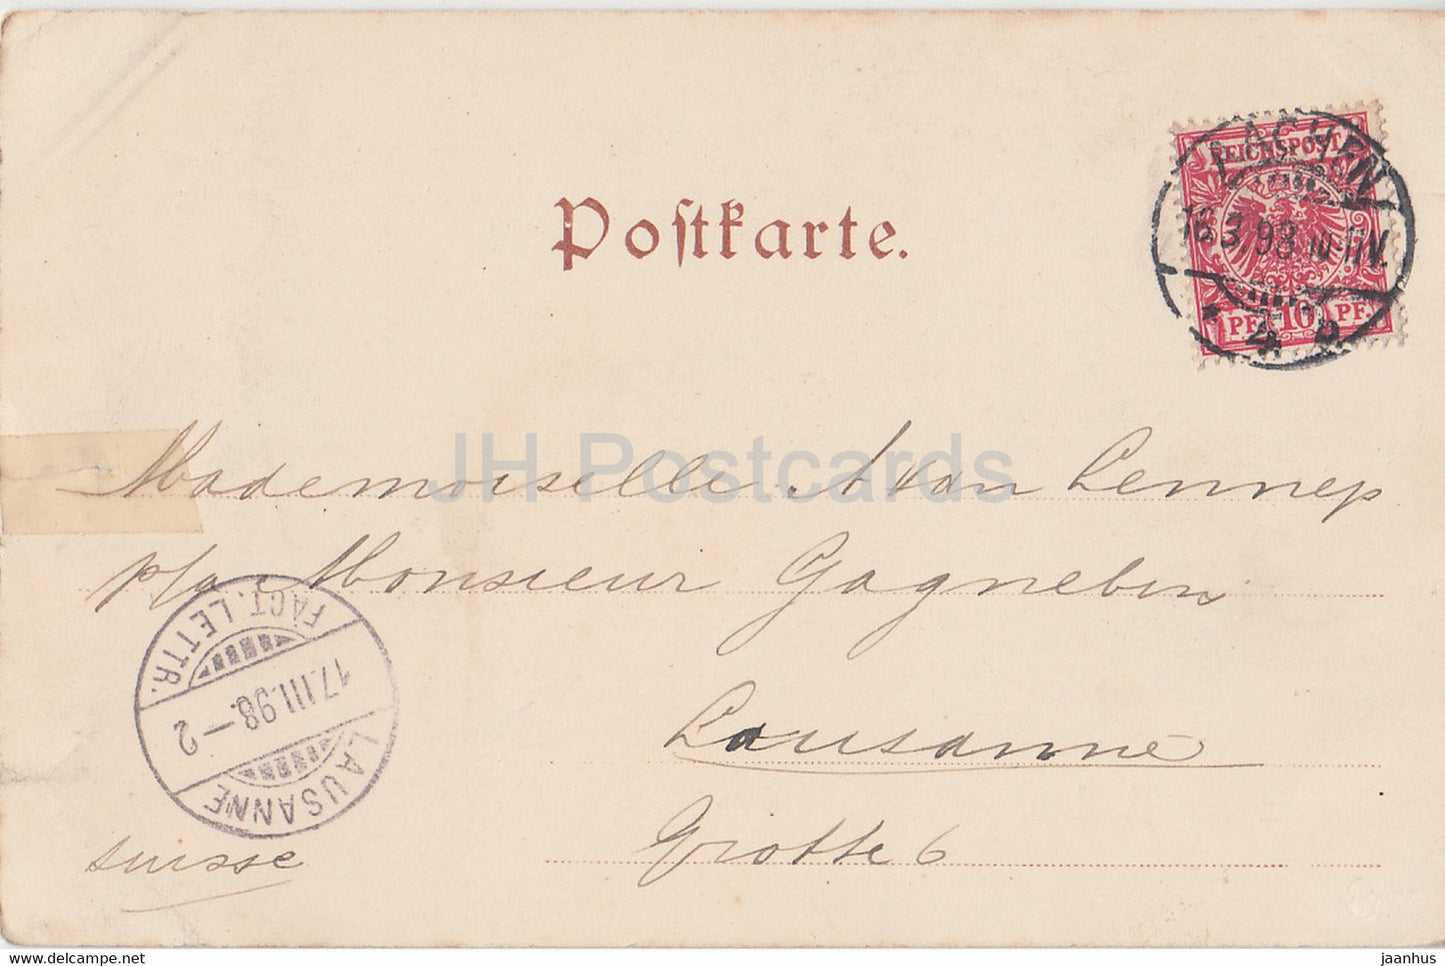 Postkarte.
REICHSPOST
PF. 10 PF.
AACHEN
16 3.98 10-11V.
* 4 p.
JH Postcards
Mademoiselle A van Lennep
p/a Monsieur Gagnebin
Lausanne
Grotte 6
suisse
LAUSANNE
17.III.98.-2
FACT. LETTR.
delcampe.net
jaanhus